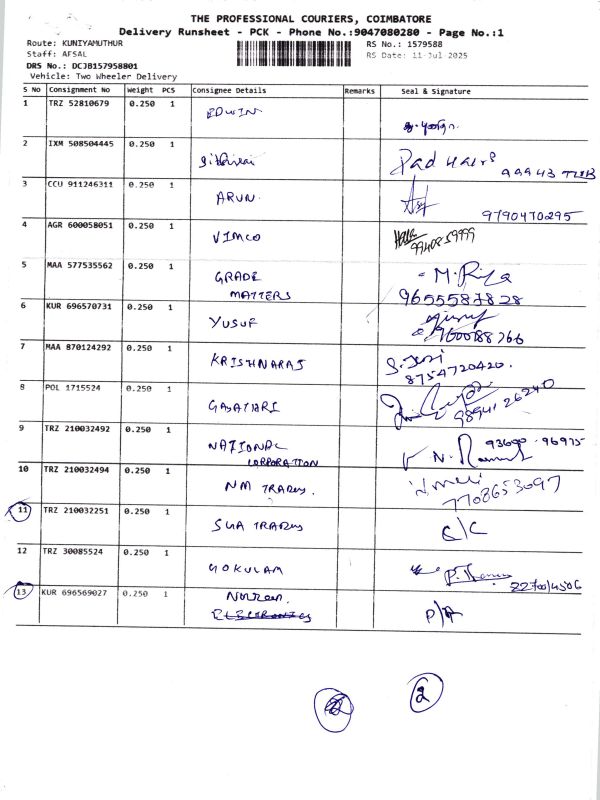 THE PROFESSIONAL COURIERS, COIMBATORE
Delivery Runsheet - PCK - Phone No.:9047080280 - Page No.:1
Route: KUNIYAMUTHUR RS No.: 1579588
Staff: AFSAL RS Date: 11-Jul-2025
DRS No.: DCJB157958801
Vehicle: Two Wheeler Delivery
S No Consignment No Weight PCS Consignee Details Remarks Seal & Signature
1 TRZ 52810679 0.250 1 EDWIN
2 IXM 508504445 0.250 1
3 CCU 911246311 0.250 1 ARUN. 9790470295
4 AGR 600058051 0.250 1 VIMCO 9940859999
5 MAA 577535562 0.250 1 GRADE MATTERS M. Priya
9655587828
6 KUR 696570731 0.250 1 YUSUF
7 MAA 870124292 0.250 1 KRISHNARAJ 8754720420.
8 POL 1715524 0.250 1 GAJATHRI 9894126240
9 TRZ 210032492 0.250 1 NATIONAL CORPORATION 93600-96975
10 TRZ 210032494 0.250 1 NM TRADERS. 7708653097
11 TRZ 210032251 0.250 1 C/C
12 TRZ 30085524 0.250 1 GOKULAM
13 KUR 696569027 0.250 1 ELECTRONICS P/A
2